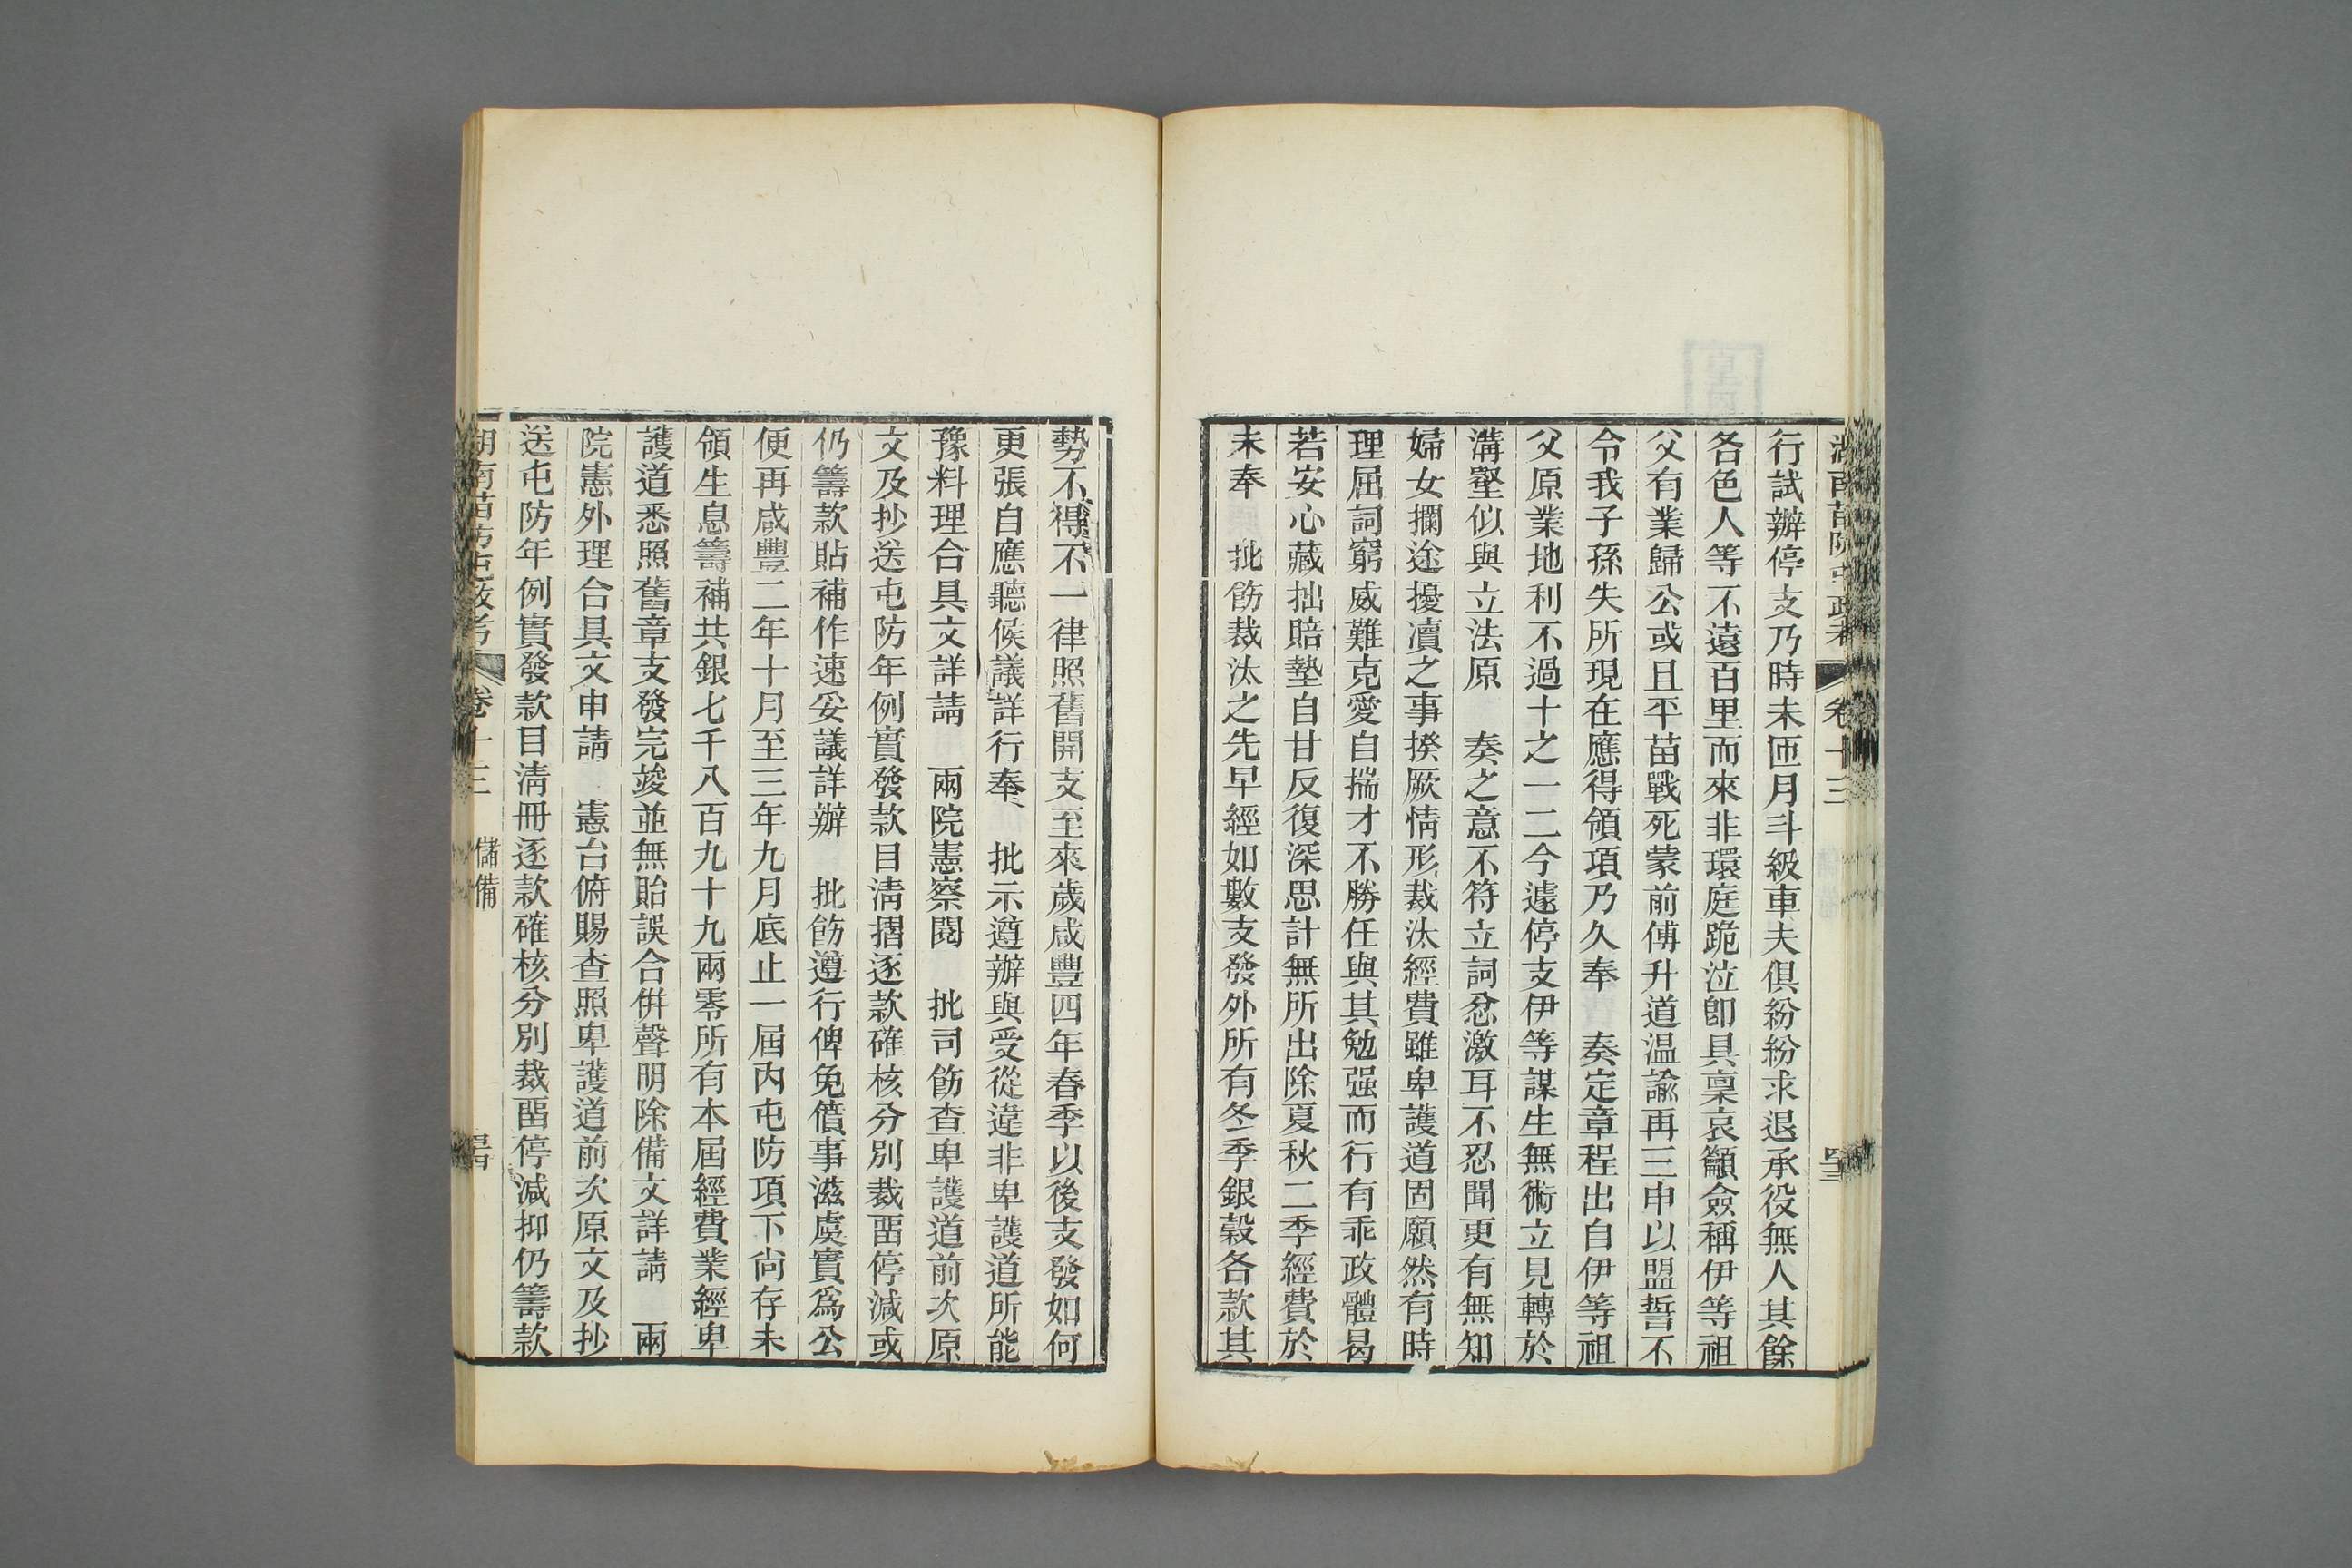 行試辦停支乃時未匝月斗級車夫俱紛紛求退承役無人其餘
各色人等不遠百里而來非環庭跪泣卽具稟哀籲僉稱伊等祖
父有業歸公或且平苗戰死蒙前傅升道溫諭再三申以盟誓不
令我子孫失所現在應得領項乃久奉　奏定章程出自伊等祖
父原業地利不過十之一二今遽停支伊等謀生無術立見轉於
溝壑似與立法原　奏之意不符立詞忿激耳不忍聞更有無知
婦女攔途擾凟之事揆厥情形裁汰經費雖卑護道固願然有時
理屈詞窮威難克愛自揣才不勝任與其勉强而行有乖政體曷
若安心藏拙賠墊自甘反復深思計無所出除夏秋二季經費於
未奉　批飭裁汰之先早經如數支發外所有冬季銀穀各款其
勢不得不一律照舊開支至來歲咸豐四年春季以後支發如何
更張自應聽候議詳行奉　批示遵辦與受從違非卑護道所能
豫料理合具文詳請　兩院憲察閱　批司飭查卑護道前次原
文及抄送屯防年例實發款目淸摺逐款確核分別裁畱停減或
仍籌款貼補作速妥議詳辦　批飭遵行俾免僨事滋虞實爲公
便再咸豐二年十月至三年九月底止一屆內屯防項下尙存未
領生息籌補共銀七千八百九十九兩零所有本屆經費業經卑
護道悉照舊章支發完竣並無貽誤合倂聲明除備文詳請　兩
院憲外理合具文申請　憲台俯賜查照卑護道前次原文及抄
送屯防年例實發款目淸冊逐款確核分別裁畱停減抑仍籌款
卷十三　儲備